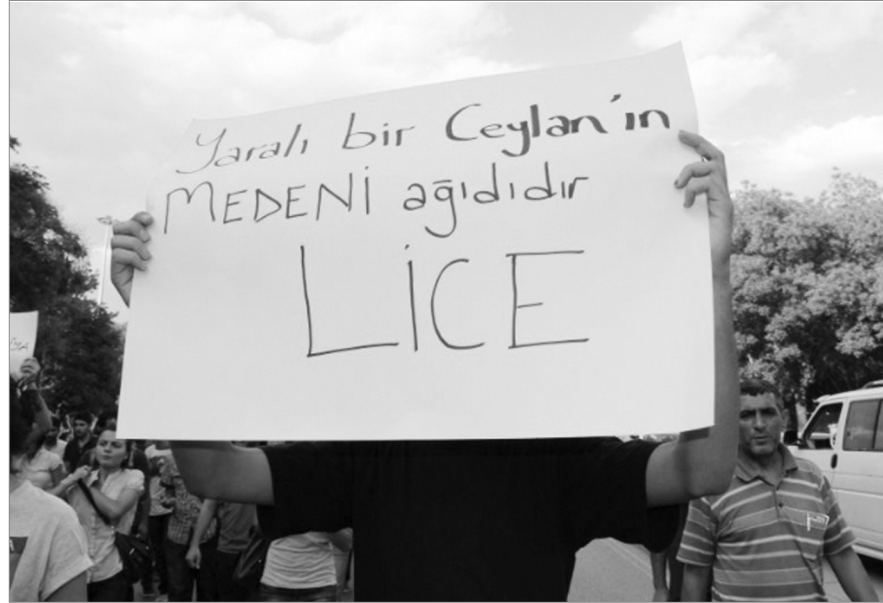 Yaralı bir Ceylan'ın
MEDENİ ağıdıdır
LİCE